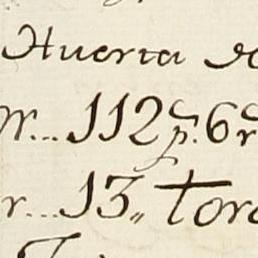 Huerta de
r... 112 p. 6 r
r... 13,, Tor